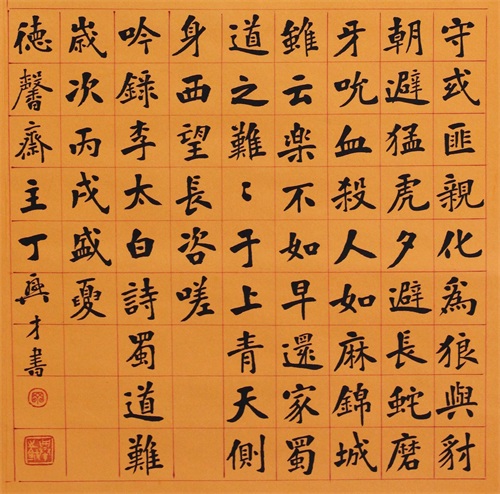 守或匪親化爲狼與豺
朝避猛虎夕避長蛇磨
牙吮血殺人如麻錦城
雖云楽不如早還家蜀
道之難〻于上青天側
身西望長咨嗟
吟録李太白詩蜀道難
歲次丙戌盛夏
徳馨齋主丁興才書